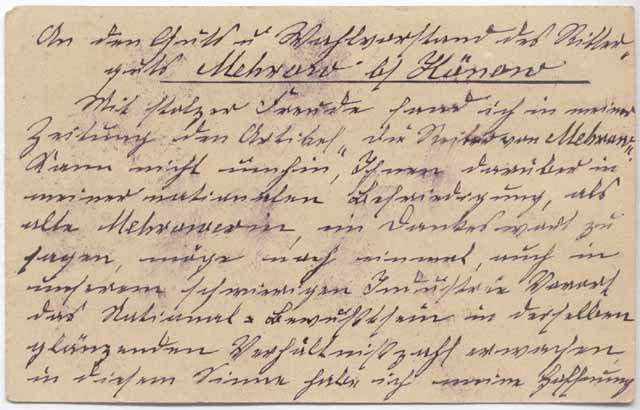 An den Guts u Wahlvorstand des Ritter-
guts Mehrow b/ Hönow
Mit stolzer Freude fand ich in meiner
Zeitung den Artikel „die Reiter von Mehrow“
Kann nicht umhin, Ihnen darüber in
meiner nationalen Befriedigung, als
alte Mehrowerin, ein Dankeswort zu
sagen, möge noch einmal, auch in
unserem schwierigen Industrie Vorort
das National-Bewußtsein in derselben
glänzenden Verhältnißzahl erwachen
in diesem Sinne habe ich meine Hoffnung